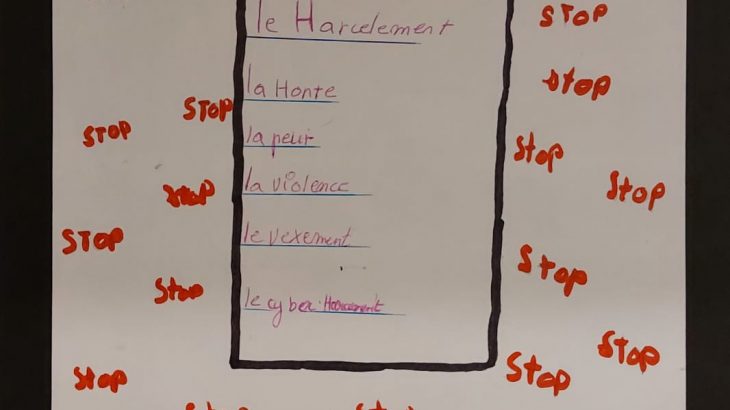 le Harcelement
STOP
STOP
la Honte
STOP
STOP
la peur
Stop
la violence
STOP
Stop
le vexement
STOP
Stop
le cyber
Stop
Stop
Stop
Stop